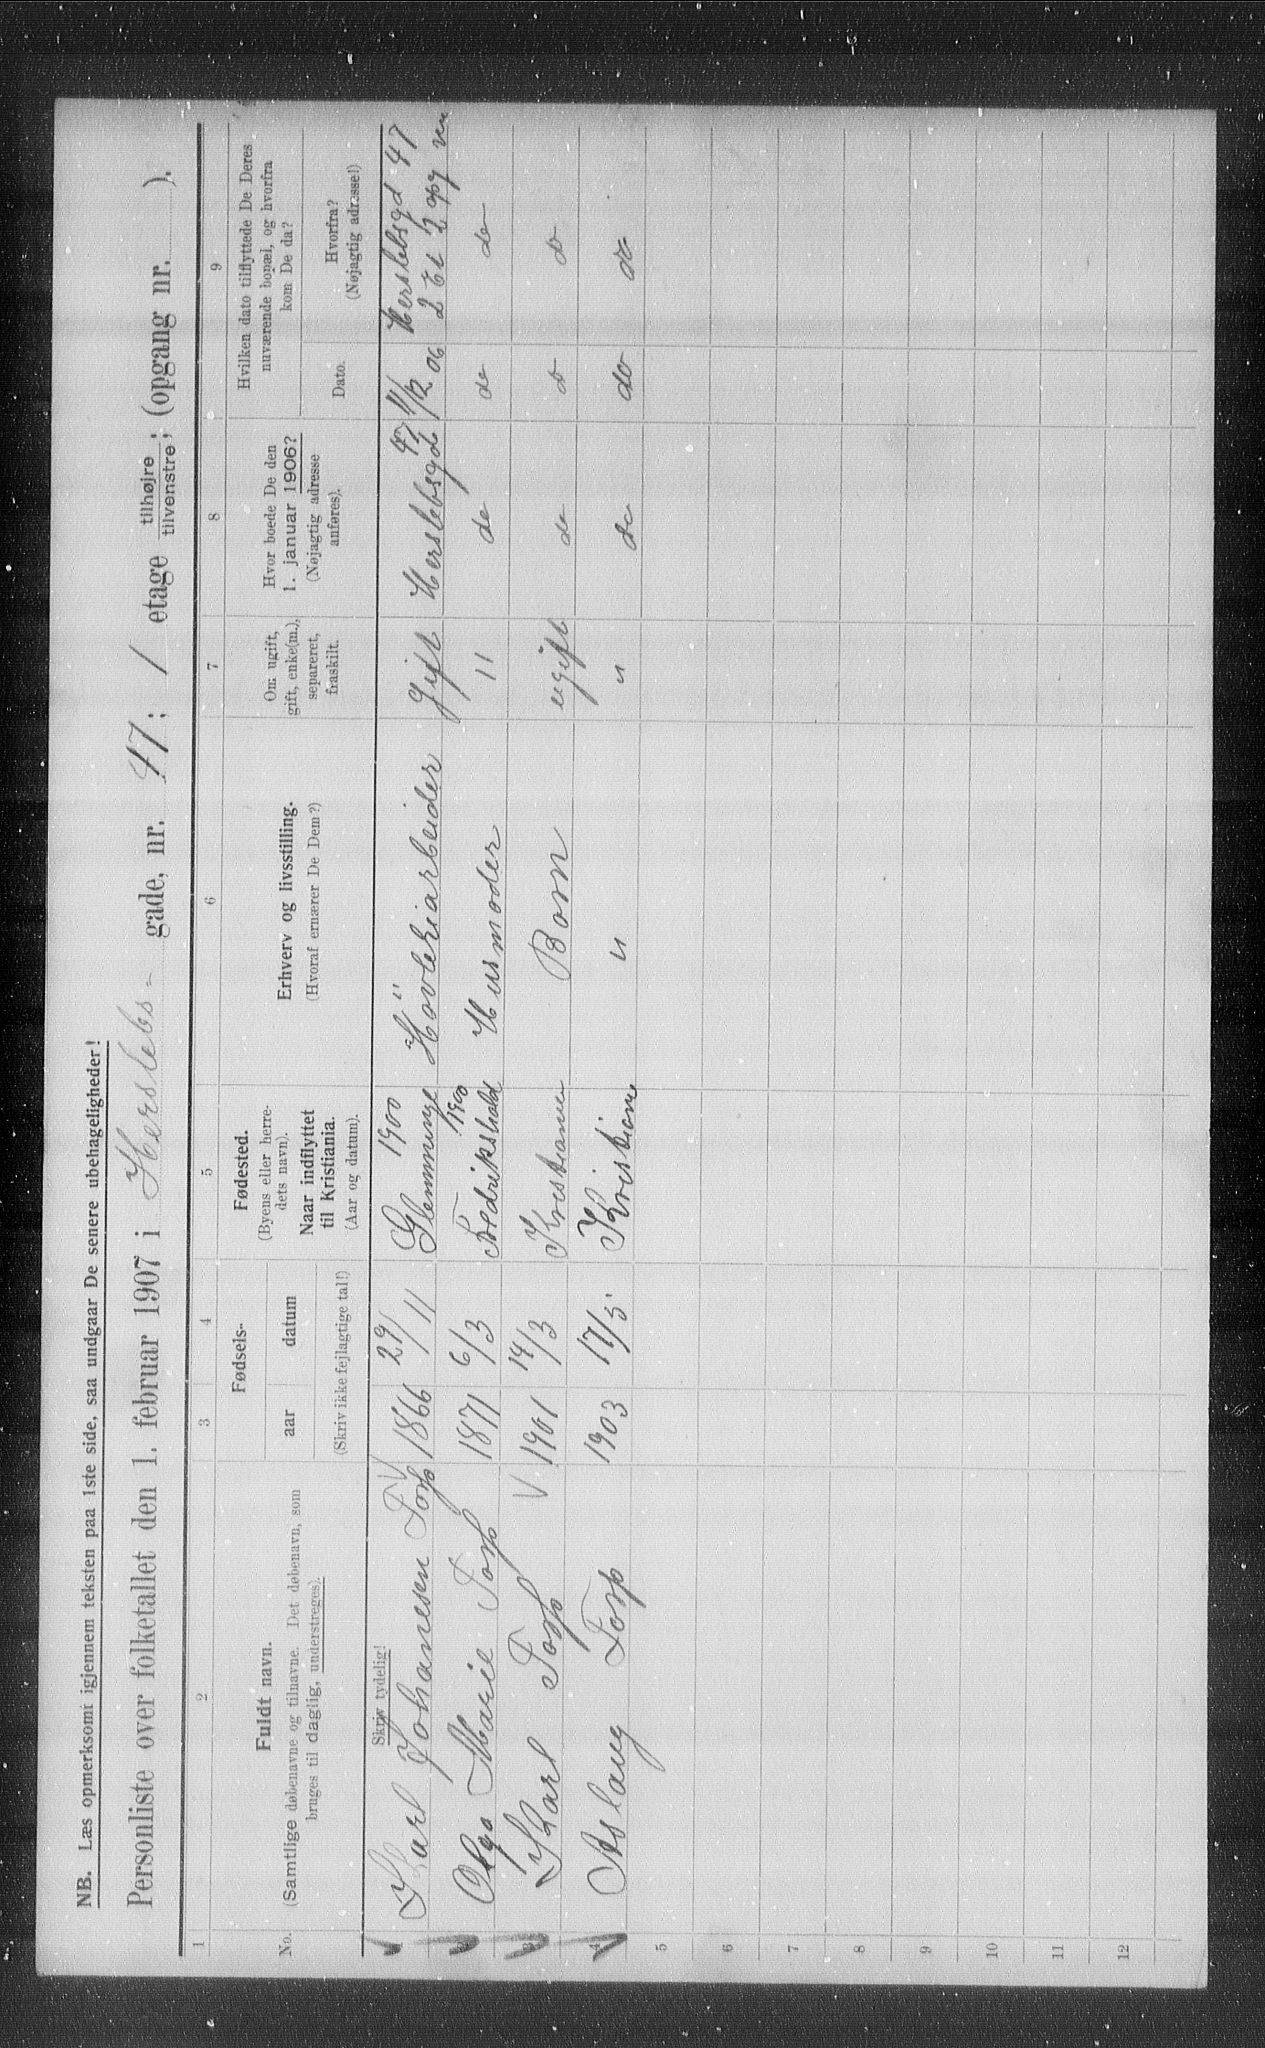 NB. Læs opmerksomt igjennem teksten paa 1ste side, saa undgaar De senere ubehageligheder!
Personliste over folketallet den 1. februar 1907 i Herslebs- gade, nr. 47; 1 etage tilhøjre / tilvenstre; (opgang nr. ).
1 2 3 4 5 6 7 8 9
No.
Fuldt navn.
(Samtlige døbenavne og tilnavne. Det døbenavn, som
bruges til daglig, understreges).
Skriv tydelig!
Fødsels-
aar datum
(Skriv ikke fejlagtige tal!)
Fødested.
(Byens eller herre-
dets navn).
Naar indflyttet
til Kristiania.
(Aar og datum).
Erhverv og livsstilling.
(Hvoraf ernærer De Dem?)
Om ugift,
gift, enke(m.),
separeret,
fraskilt.
Hvor boede De den
1. januar 1906?
(Nøjagtig adresse
anføres).
Hvilken dato tilflyttede De Deres
nuværende bopæl, og hvorfra
kom De da?
Dato.
Hvorfra?
(Nøjagtig adresse!)
1900 47 11/12 06 Herslebsgd 47
Karl Johanesen Torp 1866 29/11 Glemminge Høvleriarbeider gift Herslebsgd 2 Et 2 opg
1900
2 Olga Marie Torp 1871 6/3 Fredrikshald Husmoder " do do do
3 Karl Torp 1901 14/3 Kristiania Barn ugift do do do
4 Aslaug Torp 1903 17/5 Kristiania " " do do do
5
6
7
8
9
10
11
12